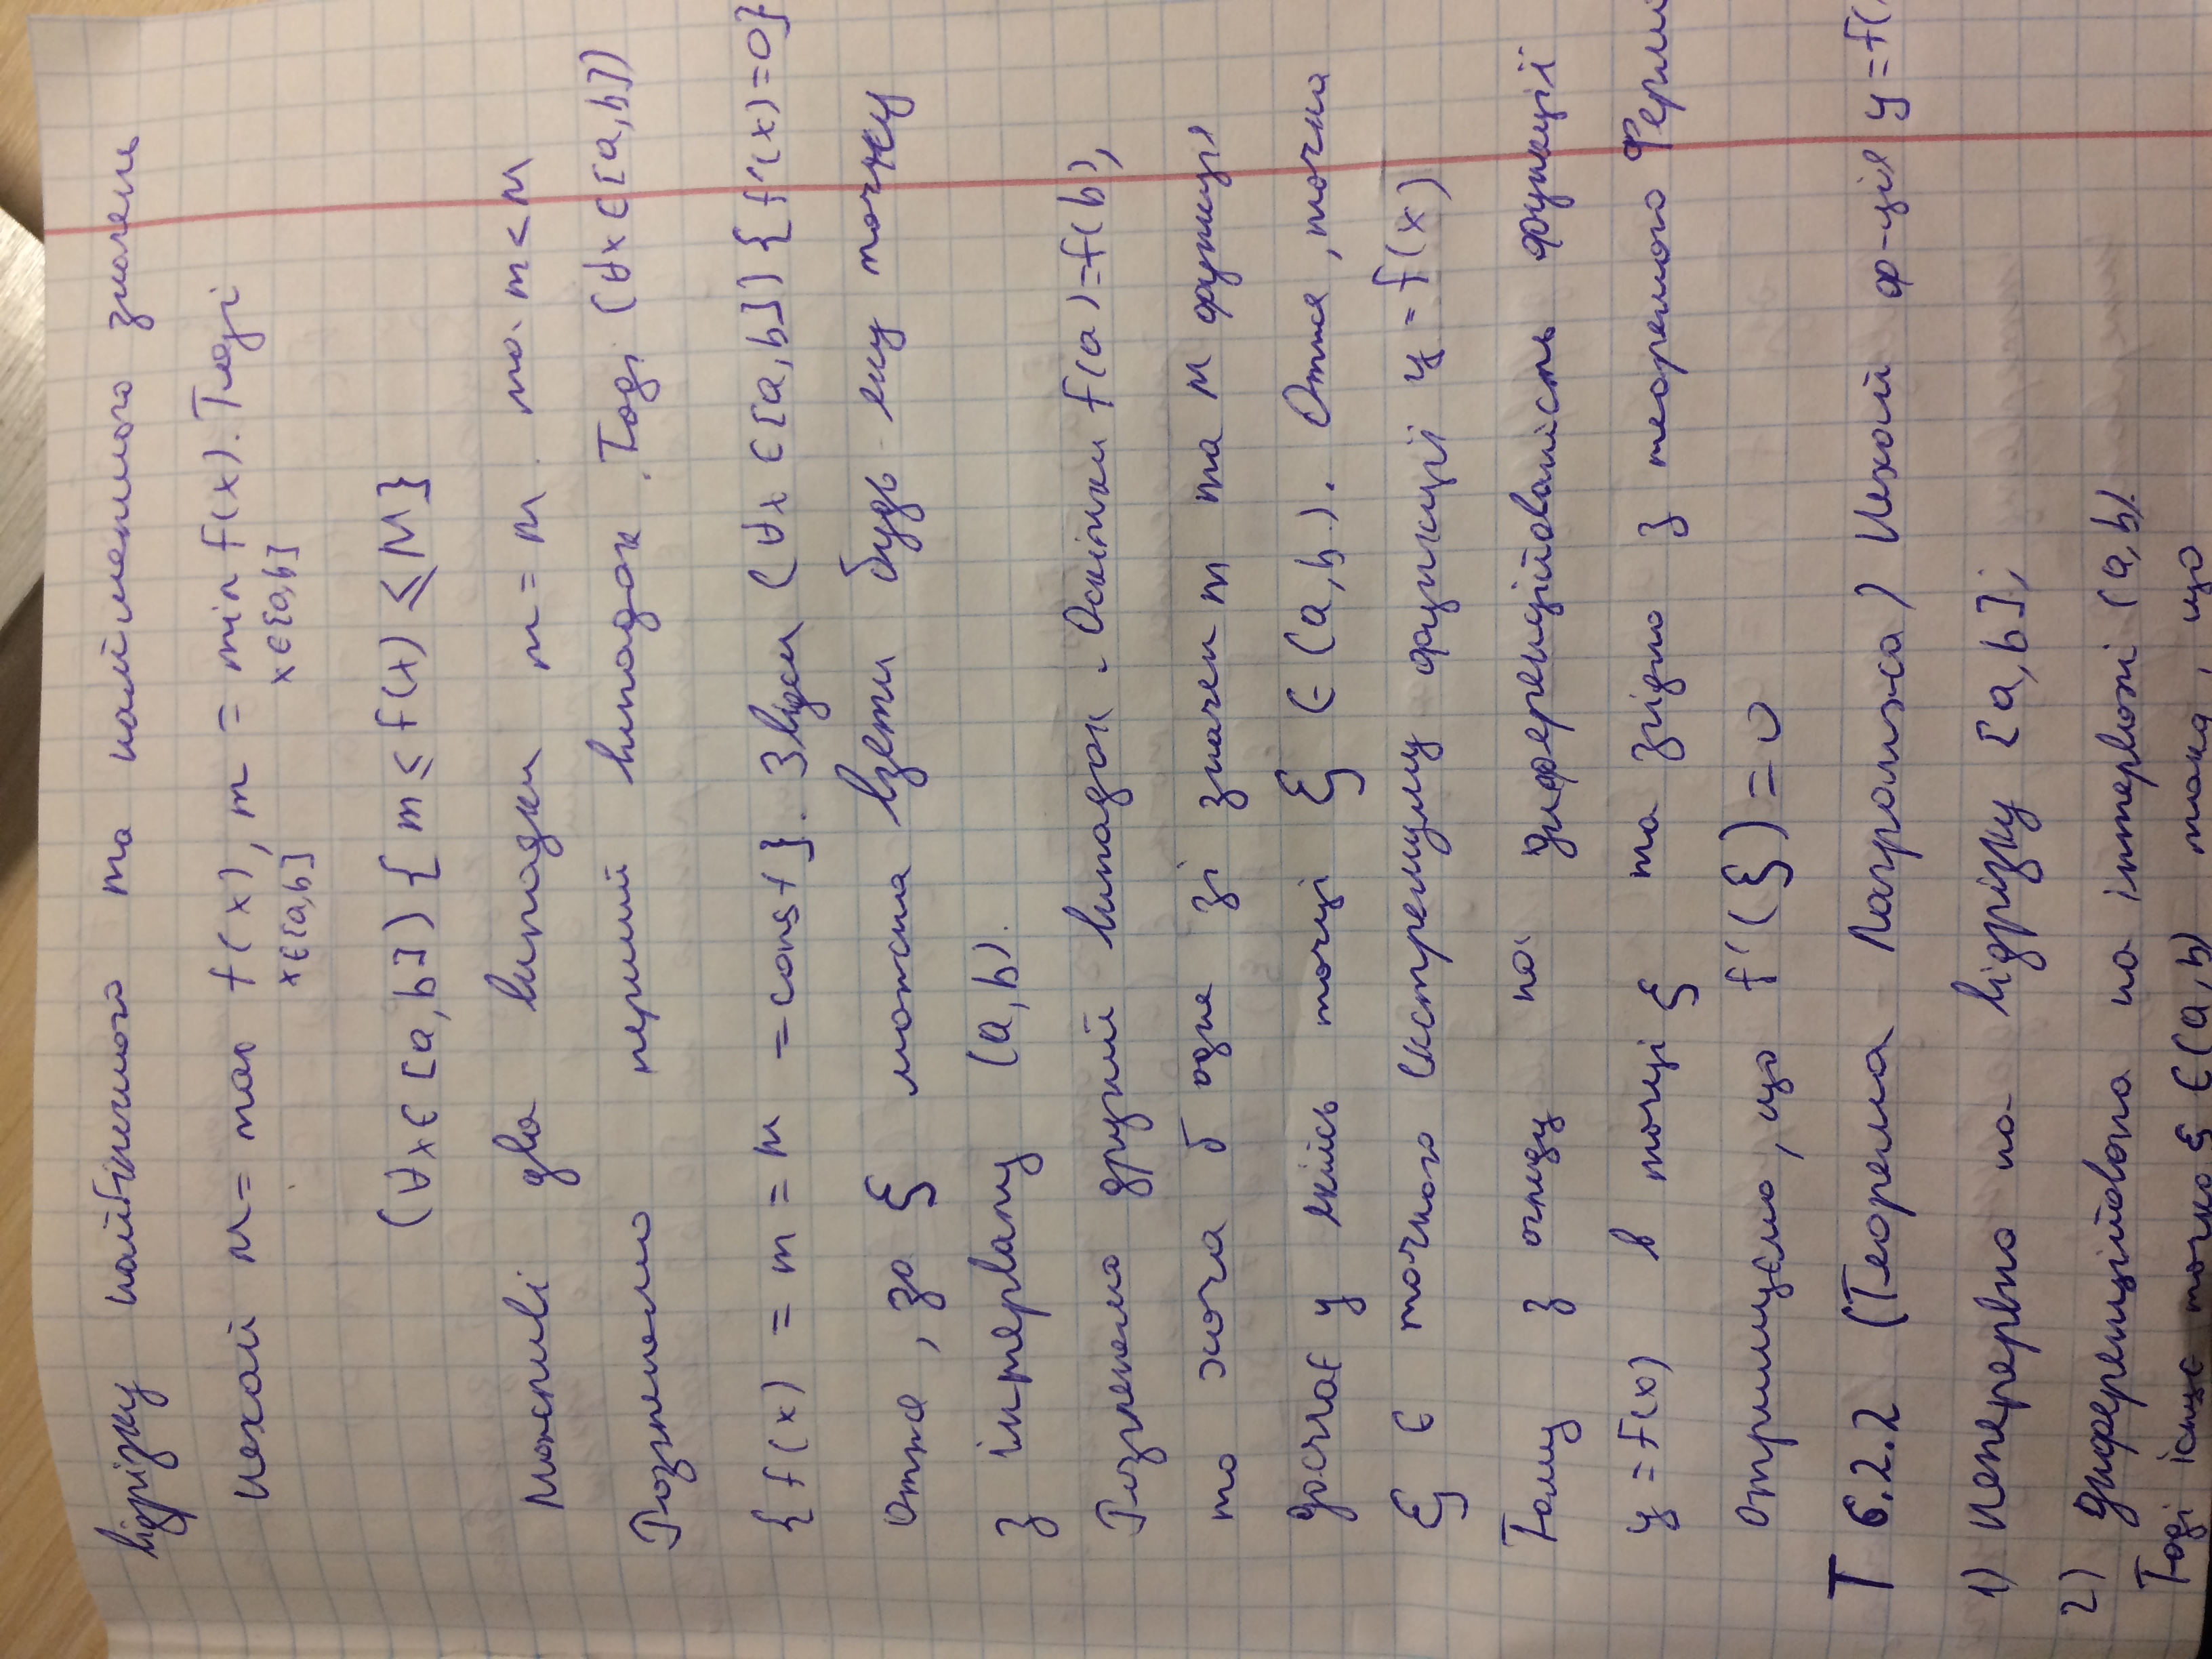 відрізку найбільшого та найменшого значень
Нехай M = max f(x), m = min f(x). Тоді
x∈[a,b] x∈[a,b]
(∀x∈[a,b]) {m ≤ f(x) ≤ M}
Можливі два випадки m = M та m < M
Розглянемо перший випадок. Тоді (∀x∈[a,b])
{f(x) = m = M = const}. Звідси (∀x∈[a,b]) {f'(x)=0}
Отже, за ξ можна взяти будь яку точку
з інтервалу (a,b).
Розглянемо другий випадок. Оскільки f(a)=f(b),
то хоча б одне зі значен m та M функція
досягає у якійсь точці ξ ∈ (a,b). Отже, точка
ξ є точкою екстремуму функції y = f(x)
Тому з огляду на диференційованість функції
y = f(x) в точці ξ та згідно з теоремою Ферма
отримуємо, що f'(ξ) = 0
Т 6.2.2 (Теорема Лагранжа) Нехай ф-ція y = f(
1) неперервна на відрізку [a,b];
2) диференційована на інтервалі (a,b).
Тоді існує точка ξ ∈(a,b) така, що